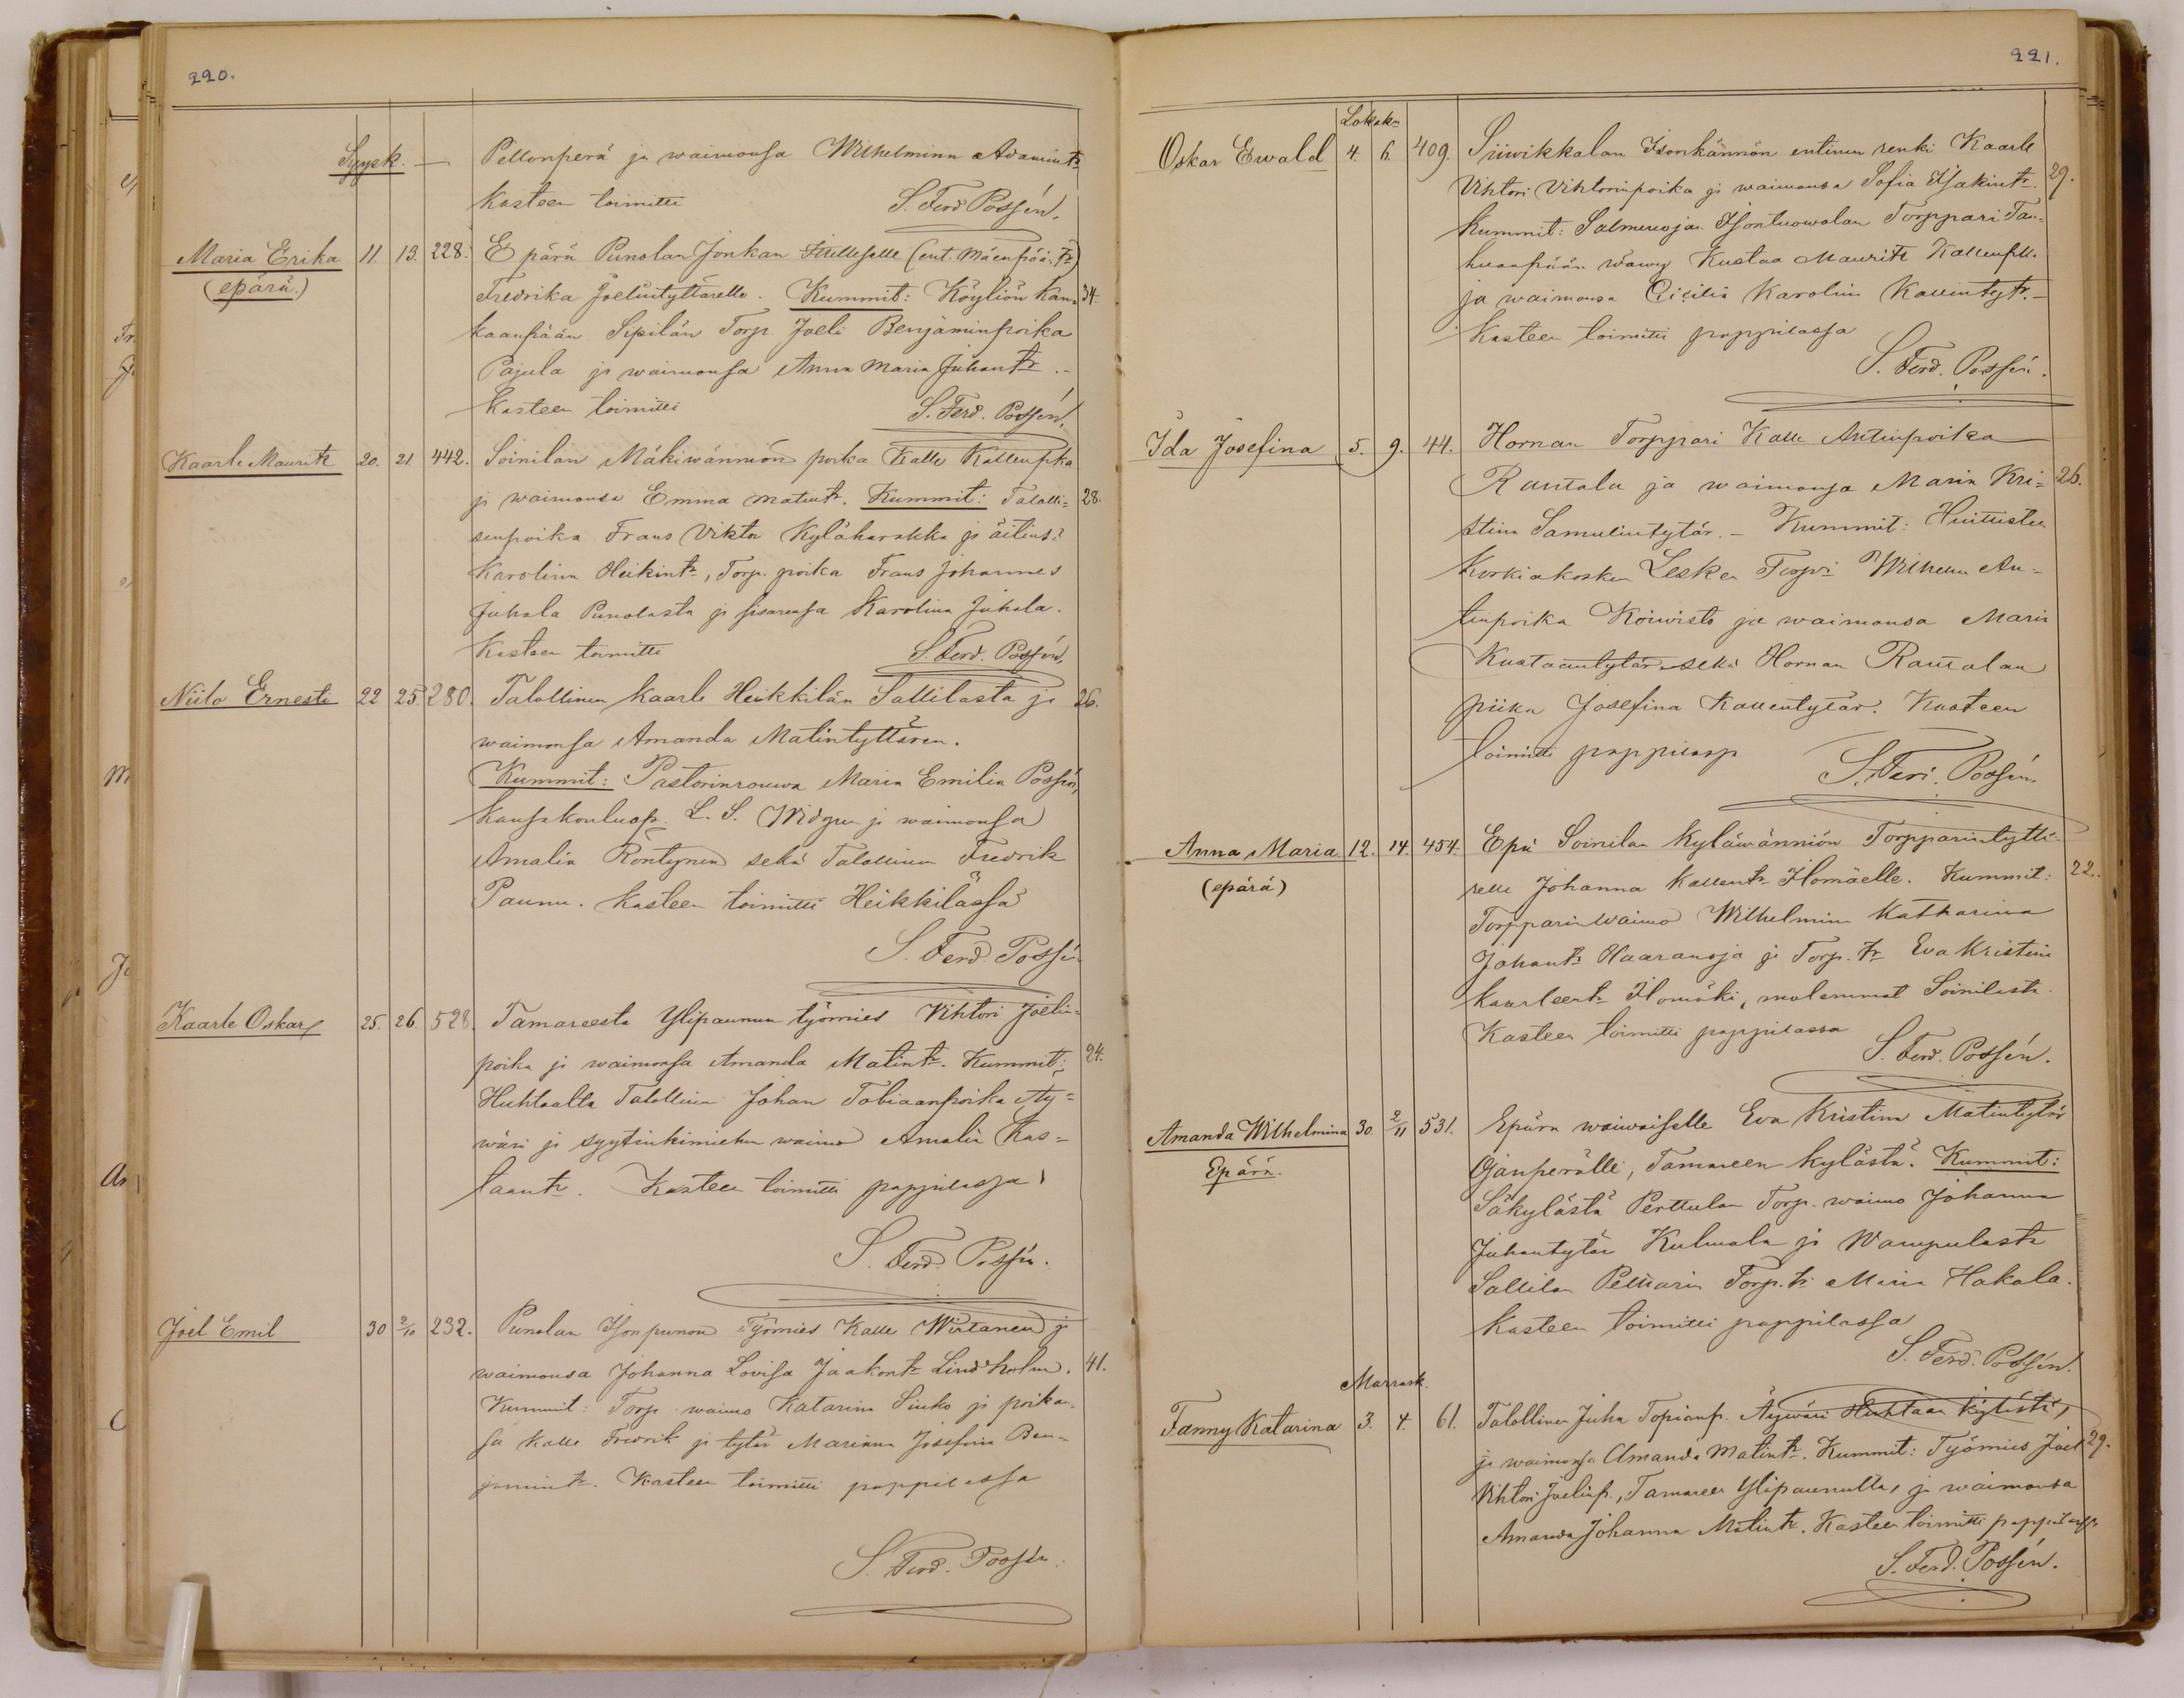 220.
Syysk. — Pellonperä ja waimonsa Wilhelmina Adamintr
Kasteen toimitti S. Ferd. Possén.
Maria Erika 11. 13. 228. Epärä Punolan Jonkan Itselleselle (ent. Mäenpää Tr)
(epärä.) Fredrika Joelintyttärelle. Kummit: Köyliön Kan= 34.
kaanpään Sipilän Torp. Joeli Benjaminpoika
Pajula ja waimonsa Anna Maria Juhantr.—
Kasteen toimitti S. Ferd. Possén.
Kaarle Maurits 20. 21. 442. Soinilan Mäkiwännion poika Kalle Kallenpka
ja waimonsa Emma Matintr. Kummit: Talolli= 28.
senpoika Frans Viktor Kyläharakka ja äitinsä
Karolina Heikintr, Torp. poika Frans Johannes
Juhala Punolasta ja sisarensa Karolina Juhala.
Kasteen toimitti S. Ferd. Possén.
Niilo Ernesti 22 25 280. Talollinen Kaarle Heikkilän Sallilasta ja 26.
waimonsa Amanda Matintyttären.
Kummit: Pastorinrouwa Maria Emilia Possén,
Kansakouluop. L. S. Widgren ja waimonsa
Amalia Röntynen sekä Talollinen Fredrik
Paunu. Kasteen toimitti Heikkilässä
S. Ferd. Possén
Kaarle Oskar 25. 26. 528. Tamareesta Ylipaunun työmies Vihtori Joelin=
poika ja waimonsa Amanda Matintr. Kummit: 24.
Huhtaalta Talollinen Johan Tobiaanpoika Äy=
wäri ja syytinkimiehen waimo Amalia Kus=
taantr. Kasteen toimitti pappilassa
S. Ferd. Possén.
Joel Emil 30 2/10 232. Punolan Isonpunon Työmies Kalle Wirtanen ja
waimonsa Johanna Lovisa Jaakontr Lindholm. 41.
Kummit: Torp. waimo Katarina Sinko ja poikan=
sa Kalle Fredrik ja tytär Marianna Josefina Ben=
jamintr. Kasteen toimitti pappilassa
S. Ferd. Possén.
221.
Lokak.
Oskar Ewald 4. 6. 409. Siiwikkalan Isonkännön entinen renki Kaarle
Vihtori Vihtorinpoika ja waimonsa Sofia Isakintr. 29.
Kummit: Salmenojan Isontuowolan Torppari Tan=
huanpään wäwy Kustaa Maurits Kallenpka.
ja waimonsa Cicilia Karolina Kallentytr.—
Kasteen toimitti pappilassa
S. Ferd. Possén.
Ida Josefina 5. 9. 44. Hornan Torppari Kalle Antinpoika
Rautala ja waimonsa Maria Kri= 26.
stiina Samulintytär.— Kummit: Huittisten
Korkiakosken Lesken Torpri Wilhelm An=
tinpoika Koiwisto ja waimonsa Maria
Kustaantytär sekä Hornan Rautalan
piika Josefina Kallentytär. Kasteen
toimitti pappilassa S. Ferd. Possén.
Anna Maria 12. 14. 454. Epä Soinilan Kyläwännion Torpparintyttä=
(epärä) relle Johanna Kallentr Ilomäelle. Kummit: 22.
Torpparin Waimo Wilhelmina Katharina
Johantr Haaranoja ja Torp. tr Eva Kristiina
Kaarleentr Ilomäki, molemmat Soinilasta
Kasteen toimitti pappilassa
S. Ferd. Possén.
Amanda Wilhelmina 30. 2/11 531. Epärä waiwaiselle Eva Kristina Matintytär
Epärä. Ojanperälle, Tamareen kylästä. Kummit:
Säkylästä Perttulan Torp. waimo Johanna
Juhantytär Kulmala ja Wampulasta
Sallilan Pelttarin Torp. tr Maria Hakala.
Kasteen toimitti pappilassa
S. Ferd. Possén.
Marrask.
Fanny Katarina 3. 4. 61. Talollinen Juha Topianp. Äywäri Huhtaan kylästä,
ja waimonsa Amanda Matintr. Kummit: Työmies Joel 29.
Vihtori Joelinp., Tamareen Ylipaunulta, ja waimonsa
Amanda Johanna Matintr. Kasteen toimitti pappilassa
S. Ferd. Possén.